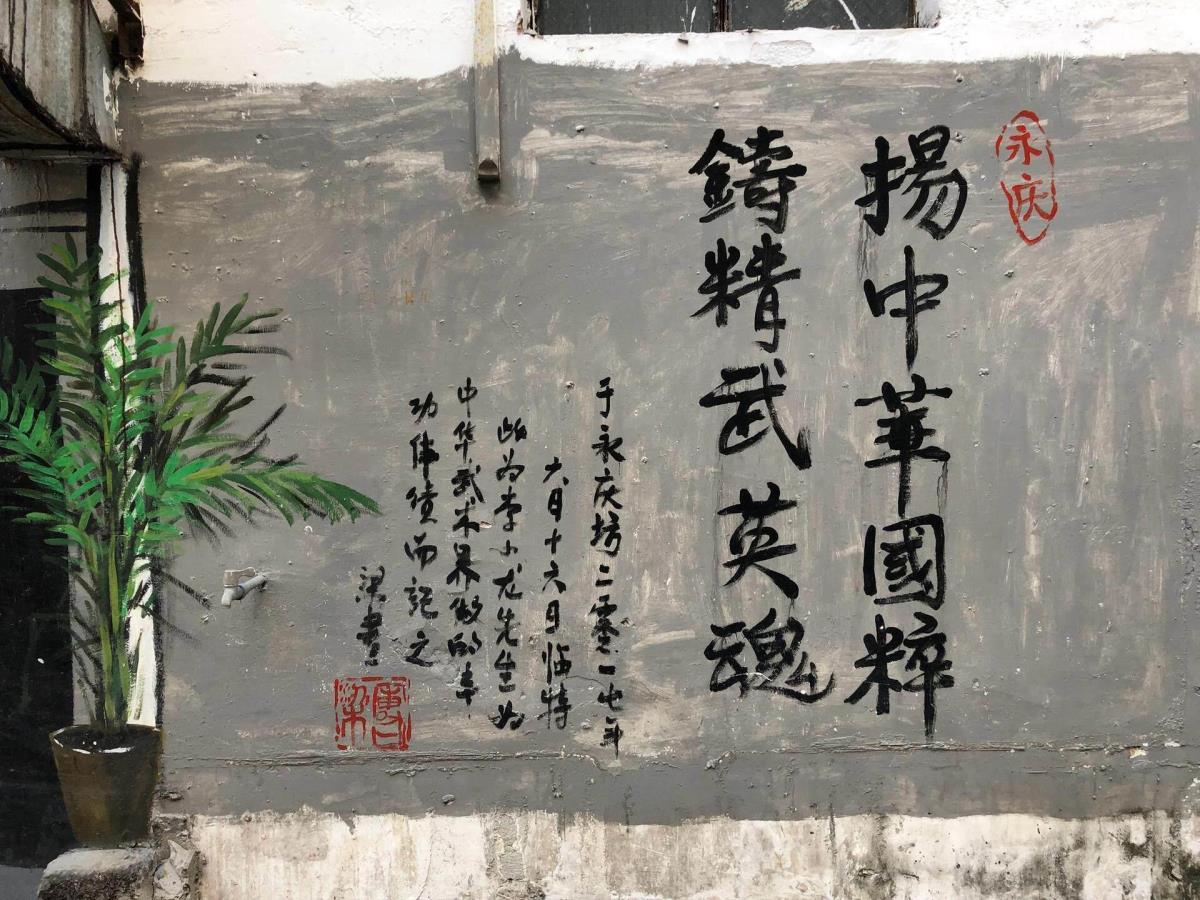 永庆
揚中華國粹
鑄精武英魂
于永庆坊二零一七年
六月十六日临特
此为李小龙先生为
中华武术界做的丰
功伟绩而记之
梁書